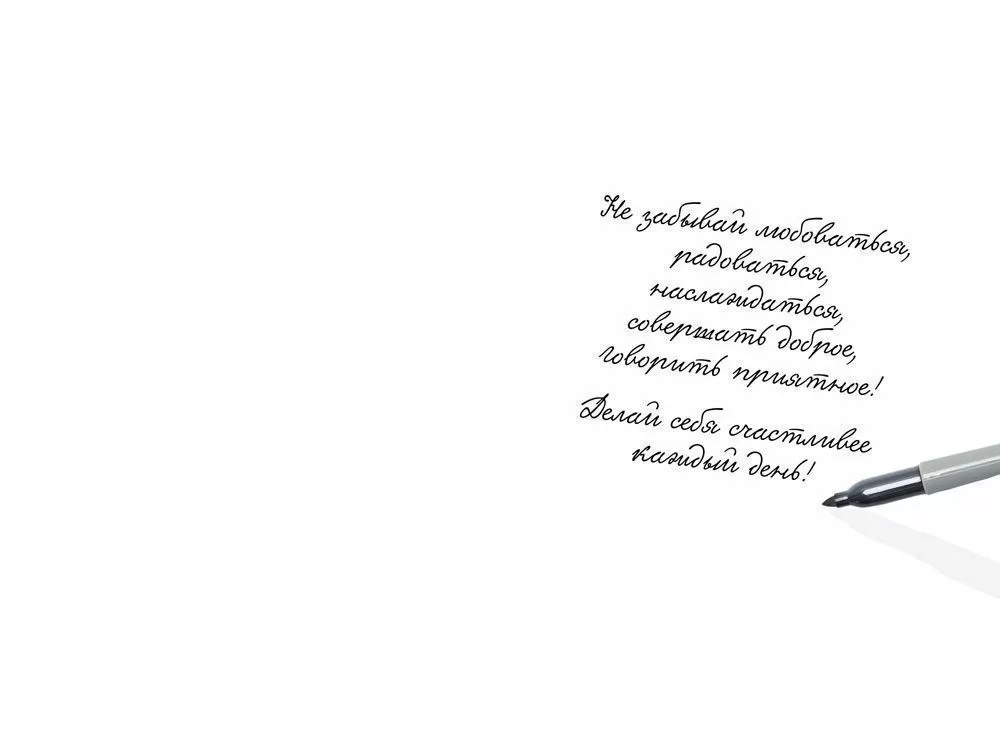 Не забывай любоваться,
радоваться,
наслаждаться,
совершать доброе,
говорить приятное!
Делай себя счастливее
каждый день!